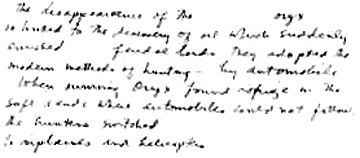 The disappearance of the oryx
is linked to the discovery of oil which suddenly
enriched feudal lords they adopted the
modern methods of hunting - by automobile
When running Oryx found refuge in the
soft sands where automobiles could not follow,
the hunters switched
to airplanes and helicopters